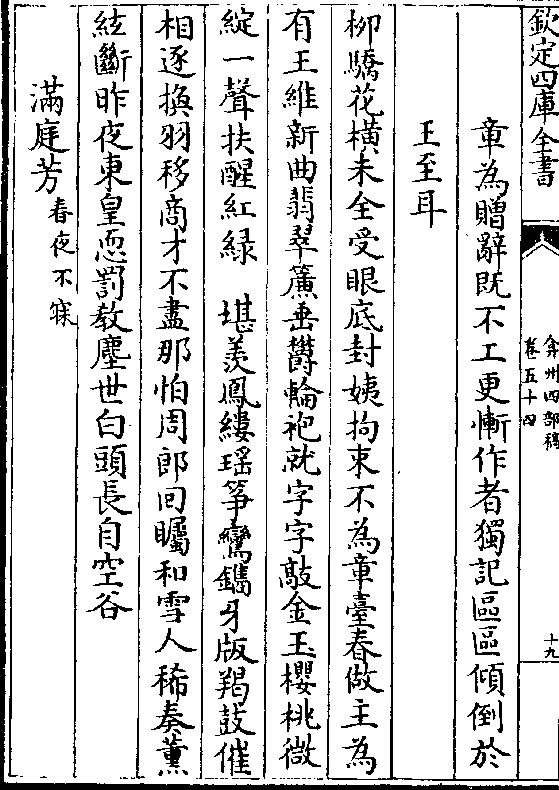 欽定四庫全書
弇州四部稿
卷五十四
十九
章為贈辭既不工更慚作者獨記區區傾倒於
王至耳
柳驕花橫未全受眼底封姨拘束不為章臺春做主為
有王維新曲翡翠簾垂鬱輪袍就字字敲金玉櫻桃微
綻一聲扶醒紅緑　堪羨鳳縷瑶箏鸞鐫牙版羯鼓催
相逐換羽移商才不盡那怕周郎回矚和雪人稀奏薰
絃斷昨夜東皇恧罰教塵世白頭長自空谷
滿庭芳春夜不寐